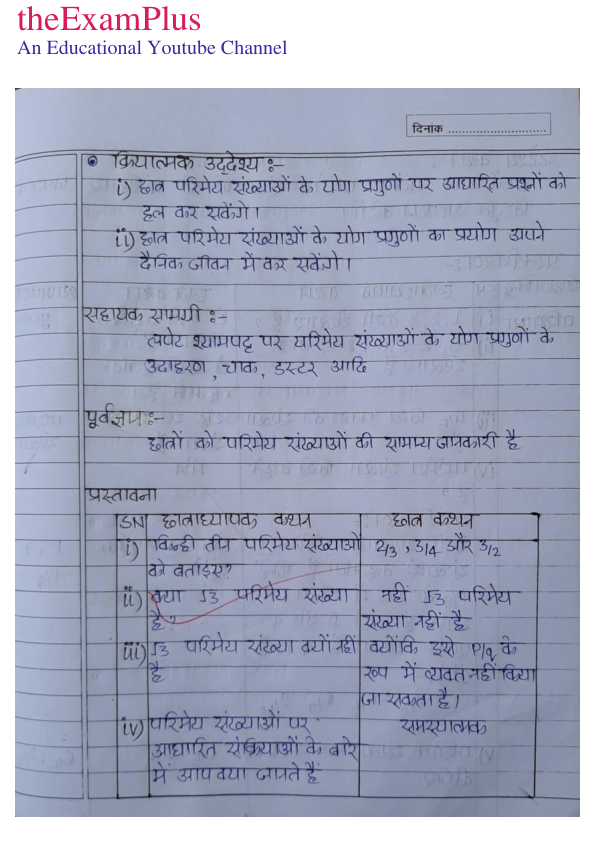 theExamPlus
An Educational Youtube Channel
दिनांक ............................
• क्रियात्मक उद्देश्य :-
i) छात्र परिमेय संख्याओं के योग प्रगुणों पर आधारित प्रश्नों को
हल कर सकेंगे।
ii) छात्र परिमेय संख्याओं के योग प्रगुणों का प्रयोग अपने
दैनिक जीवन में कर सकेंगे।
सहायक सामग्री :-
लपेट श्यामपट्ट पर परिमेय संख्याओं के योग प्रगुणों के
उदाहरण, चाक, डस्टर आदि
पूर्वज्ञान:-
छात्रों को परिमेय संख्याओं की सामान्य जानकारी है
प्रस्तावना
SN छात्राध्यापक कथन छात्र कथन
i) किन्ही तीन परिमेय संख्याओं 2/3, 3/4 और 3/2
को बताइए?
ii) क्या √3 परिमेय संख्या नहीं √3 परिमेय
है? संख्या नहीं है
iii) √3 परिमेय संख्या क्यों नहीं क्योंकि इसे P/q के
है रूप में व्यक्त नहीं किया
जा सकता है।
iv) परिमेय संख्याओं पर समस्यात्मक
आधारित संक्रियाओं के बारे
में आप क्या जानते हैं